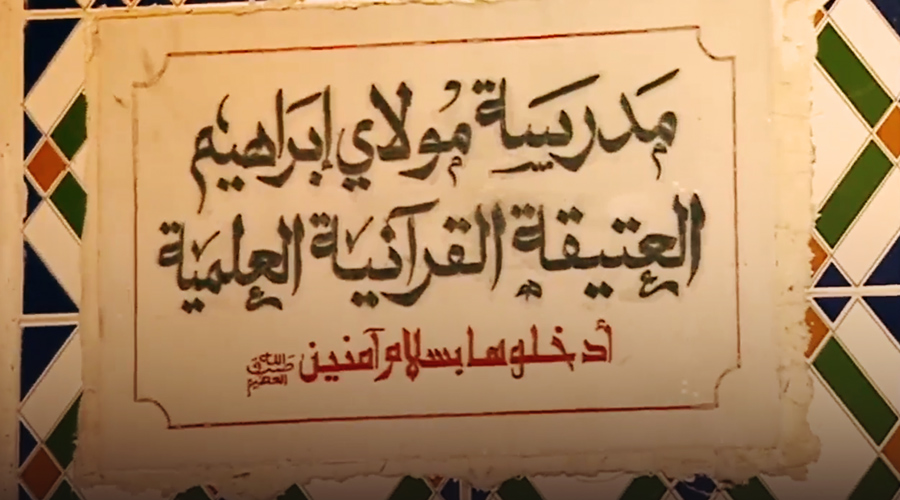 مدرسة مولاي إبراهيم
العتيقة القرآنية العلمية
أدخلوها بسلام آمنين صدق الله العظيم